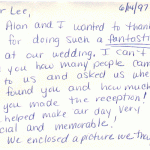 r Lee, 6/14/97
Alan and I wanted to thank
for doing such a fantastic
at our wedding. I can't
you how many people came
to us and asked us where
found you and how much
you made the reception!
helped make our day very
cial and memorable!
We enclosed a picture we tha